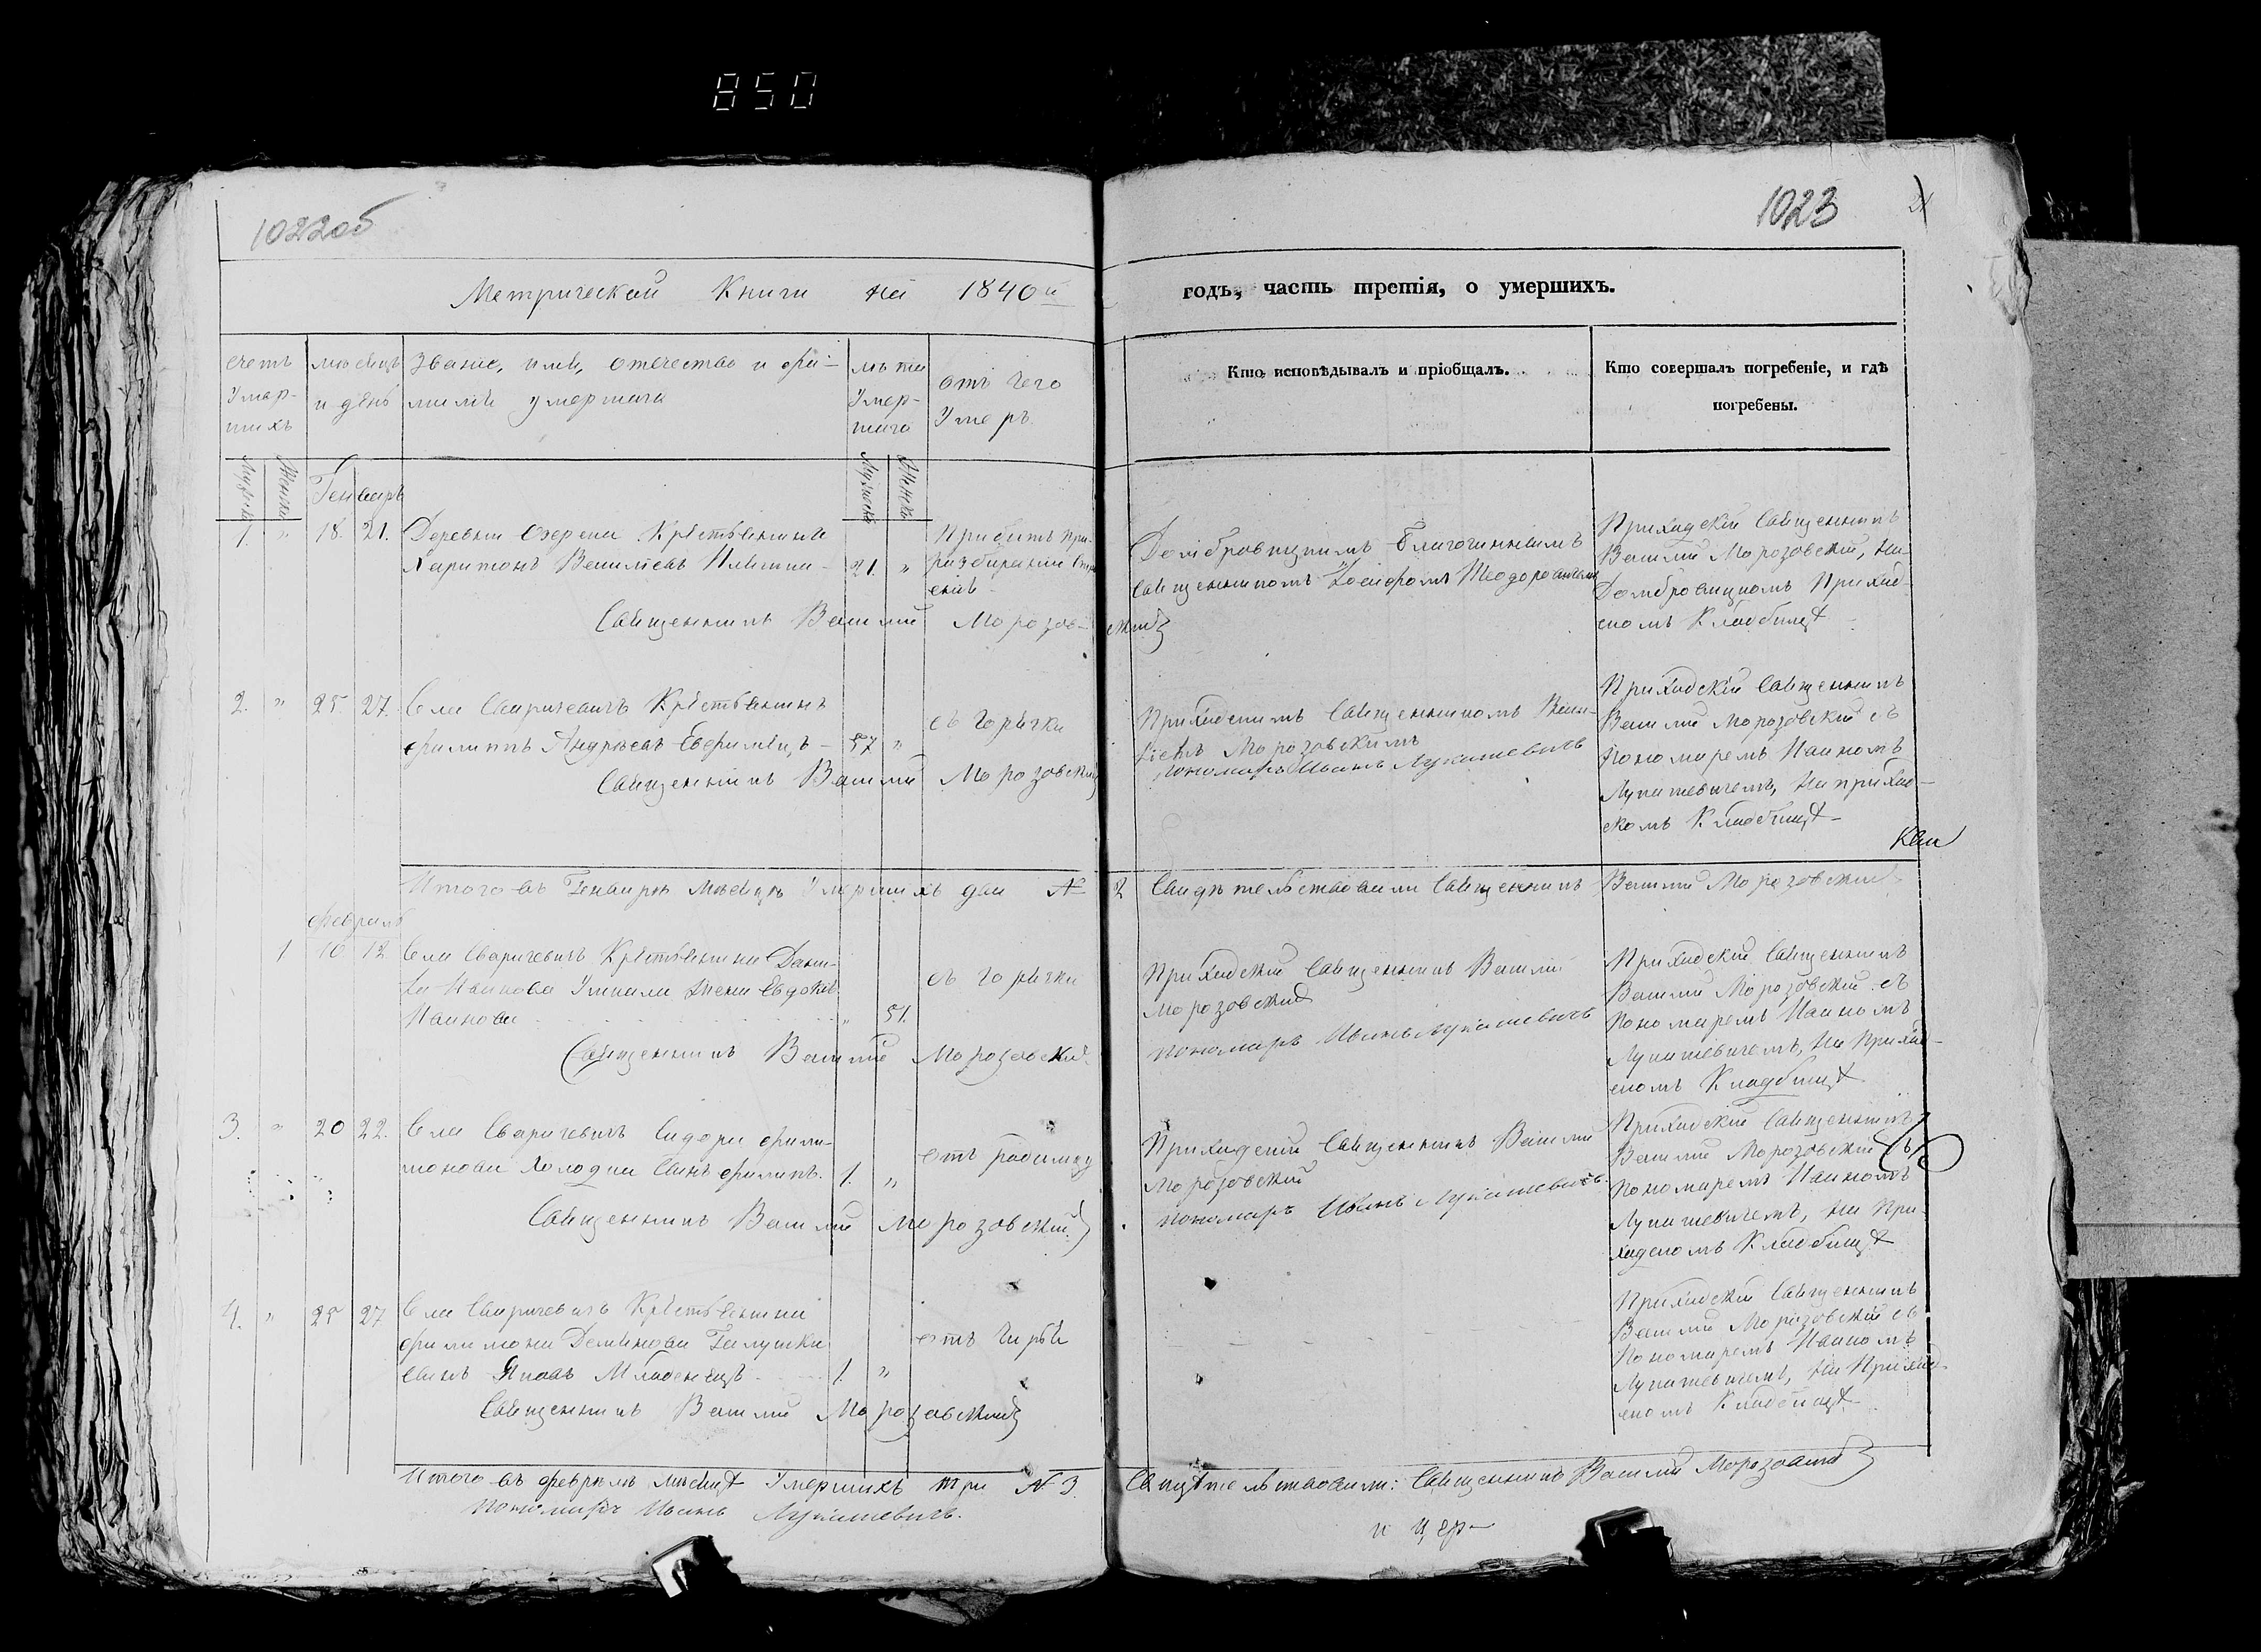 850
1022об
Метрической Книги на 1840й
счетъ Умер-шихъ
мѣсяцъ и день
Званіе, имя, отечество и фа-
милія умершаго
лѣта Умер-шаго
отъ чего Умеръ
Мужеска Женска
Генварь
Мужеска Женска
1. " 18. 21. Деревни Озерска Крестьянинъ
Харитонъ Васильевъ 21. "
Прибитъ при
разбираніи
Священникъ Василій Морозовскій
2. " 25. 27. Села Сваричевичъ Крестьянинъ
Филиппъ Андреевъ 57 "
съ горячки
Священникъ Василій Морозовскій
Итого въ Генварѣ мѣсяцѣ Умершихъ два № 2
Февраль
1 10 12 Села Сваричевичъ Крестьянина Дани-
ла Иванова жена Евдокія
Иванова " 51.
съ горячки
Священникъ Василій Морозовскій
3. " 20 22. Села Сваричевичъ Сидора Фили-
монова Холодка Сынъ Филипъ. 1. "
отъ родимцу
Священникъ Василій Морозовскій
4. " 25 27 Села Сваричевичъ Крестьянина
Филимона Галушки
сынъ Яковъ Младенецъ 1. "
отъ
Священникъ Василій Морозовскій
Итого въ Февралѣ мѣсяцѣ Умершихъ три № 3.
Пономарь Иванъ Лукашевичъ.
1023
годъ, часть третія, о умершихъ.
Кто исповѣдывалъ и пріобщалъ.
Кто совершалъ погребеніе, и гдѣ
погребены.
Домбровицкимъ Благочиннымъ
Священникомъ Іосифомъ
Приходскій Священникъ
Василій Морозовскій, на
Домбровицкомъ Приход-
скомъ Кладбищѣ
Приходскимъ Священникомъ Васи-
ліемъ Морозовскимъ
пономарь Иванъ Лукашевичъ
Приходскій Священникъ
Василій Морозовскій съ
пономаремъ Иваномъ
Лукашевичемъ, на приход-
скомъ Кладбищѣ
Свидѣтельствовали Священникъ Василій Морозовскій
Приходскій Священникъ Василій
Морозовскій
пономарь Иванъ Лукашевичъ
Приходскій Священникъ
Василій Морозовскій съ
пономаремъ Иваномъ
Лукашевичемъ, на Приход-
скомъ Кладбищѣ
Приходскій Священникъ Василій
Морозовскій
пономарь Иванъ Лукашевичъ.
Приходскій Священникъ
Василій Морозовскій съ
пономаремъ Иваномъ
Лукашевичемъ, на При-
ходскомъ Кладбищѣ
Приходскій Священникъ
Василій Морозовскій съ
пономаремъ Иваномъ
Лукашевичемъ, на Приход-
скомъ Кладбищѣ
Свидѣтельствовали: Священникъ Василій Морозовскій
и цер-